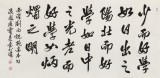 少而好學
如日出之
陽壯而好
學如日中
之光老而
好學如炳
燭之明